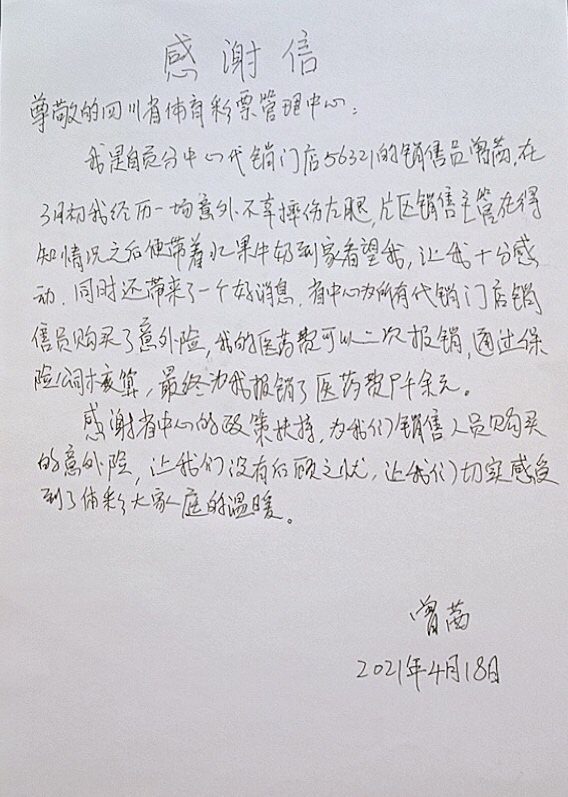 感谢信
尊敬的四川省体育彩票管理中心：
我是自贡分中心代销门店56321的销售员曾茜，在
3月初我经历一场意外不幸摔伤左腿，片区销售主管在得
知情况之后便带着水果牛奶到家看望我，让我十分感
动．同时还带来了一个好消息．省中心为所有代销门店销
售员购买了意外险，我的医药费可以二次报销，通过保
险公司核算，最终为我报销了医药费千余元。
感谢省中心的政策扶持，为我们销售人员购买
的意外险，让我们没有后顾之忧，让我们切实感受
到了体彩大家庭的温暖。
曾茜
2021年4月18日